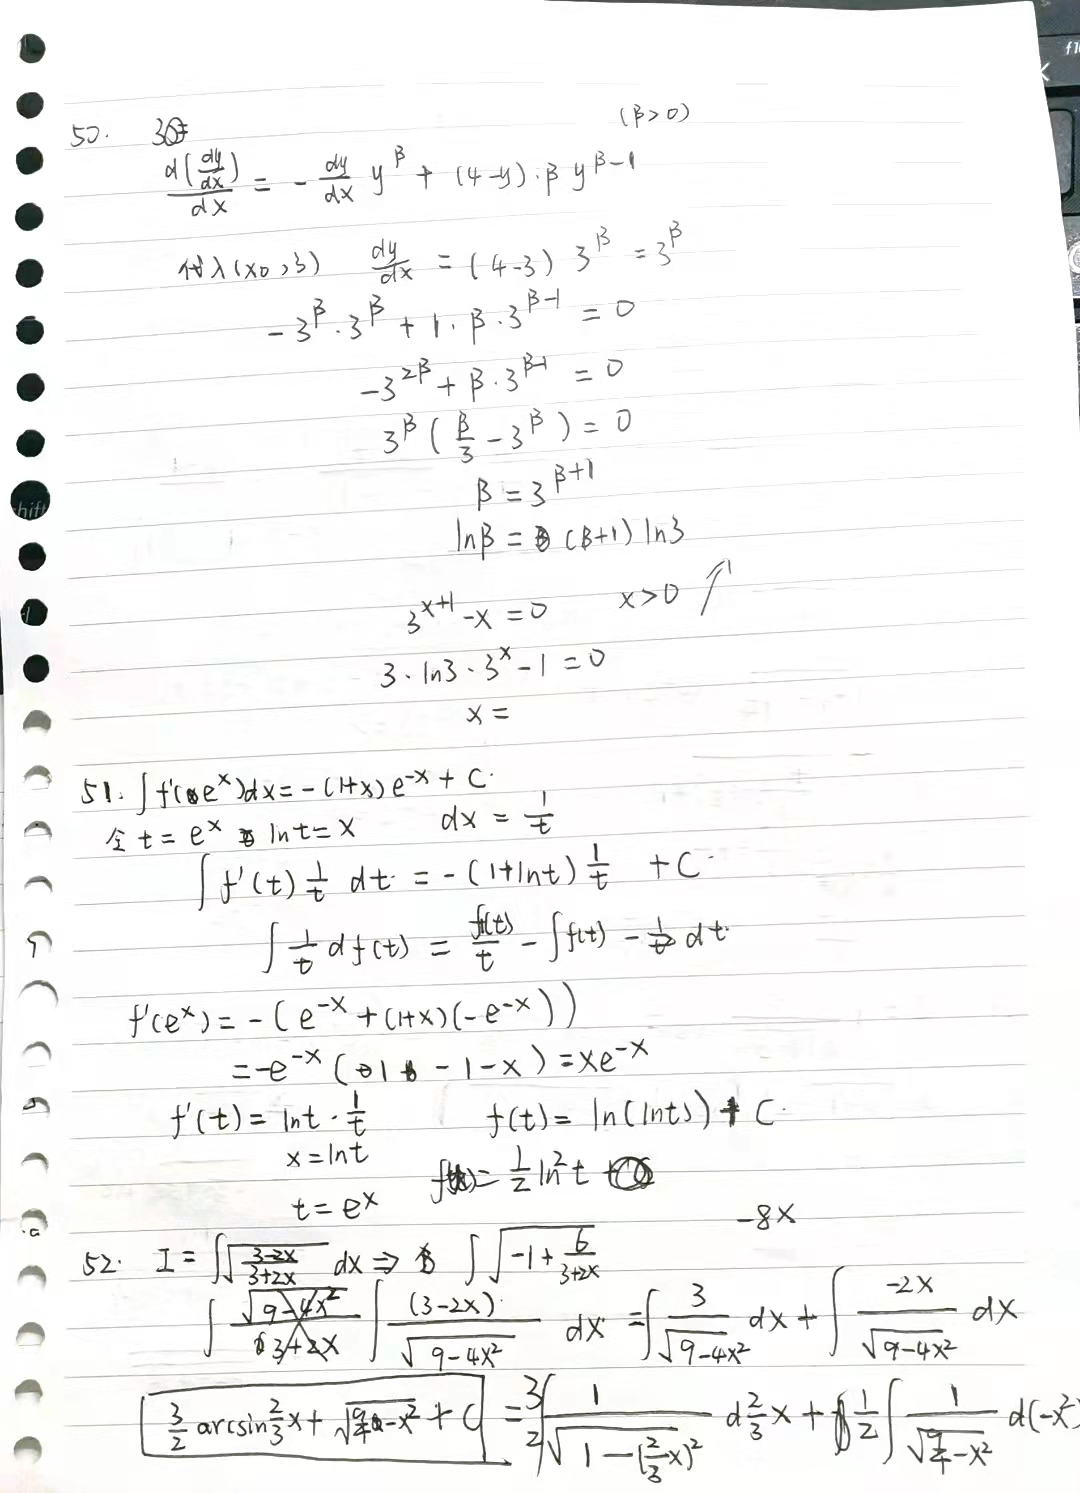 50.
(β>0)
d(dy/dx)/dx = - dy/dx y^β + (4-y)·β y^(β-1)
代入(x0,3) dy/dx = (4-3) 3^β = 3^β
-3^β·3^β + 1·β·3^(β-1) = 0
-3^(2β) + β·3^(β-1) = 0
3^β (β/3 - 3^β) = 0
β = 3^(β+1)
lnβ = (β+1) ln3
3^(x+1) - x = 0 x>0 ↗
3·ln3·3^x - 1 = 0
x =
51. ∫f'(e^x)dx = -(1+x)e^(-x) + C.
令 t = e^x lnt = x dx = 1/t
∫f'(t) 1/t dt = -(1+lnt) 1/t + C.
∫ 1/t df(t) = f(t)/t - ∫f(t) - 1/t² dt
f'(e^x) = -(e^(-x) + (1+x)(-e^(-x)))
= -e^(-x) (1 - 1 - x) = xe^(-x)
f'(t) = lnt · 1/t f(t) = ln(lnt) + C.
x = lnt
= 1/2 ln²t
t = e^x
-8x
52. I = ∫√((3-2x)/(3+2x)) dx ⇒ ∫√(-1 + 6/(3+2x))
∫ √(9-4x²)/(3+2x) ∫ (3-2x)/√(9-4x²) dx = ∫ 3/√(9-4x²) dx + ∫ -2x/√(9-4x²) dx
3/2 arcsin 2/3 x + √(9/4 - x²) + C = 3/2 ∫ 1/√(1-(2/3 x)²) d 2/3 x + 1/2 ∫ 1/√(9/4 - x²) d(-x²)
f1
shift